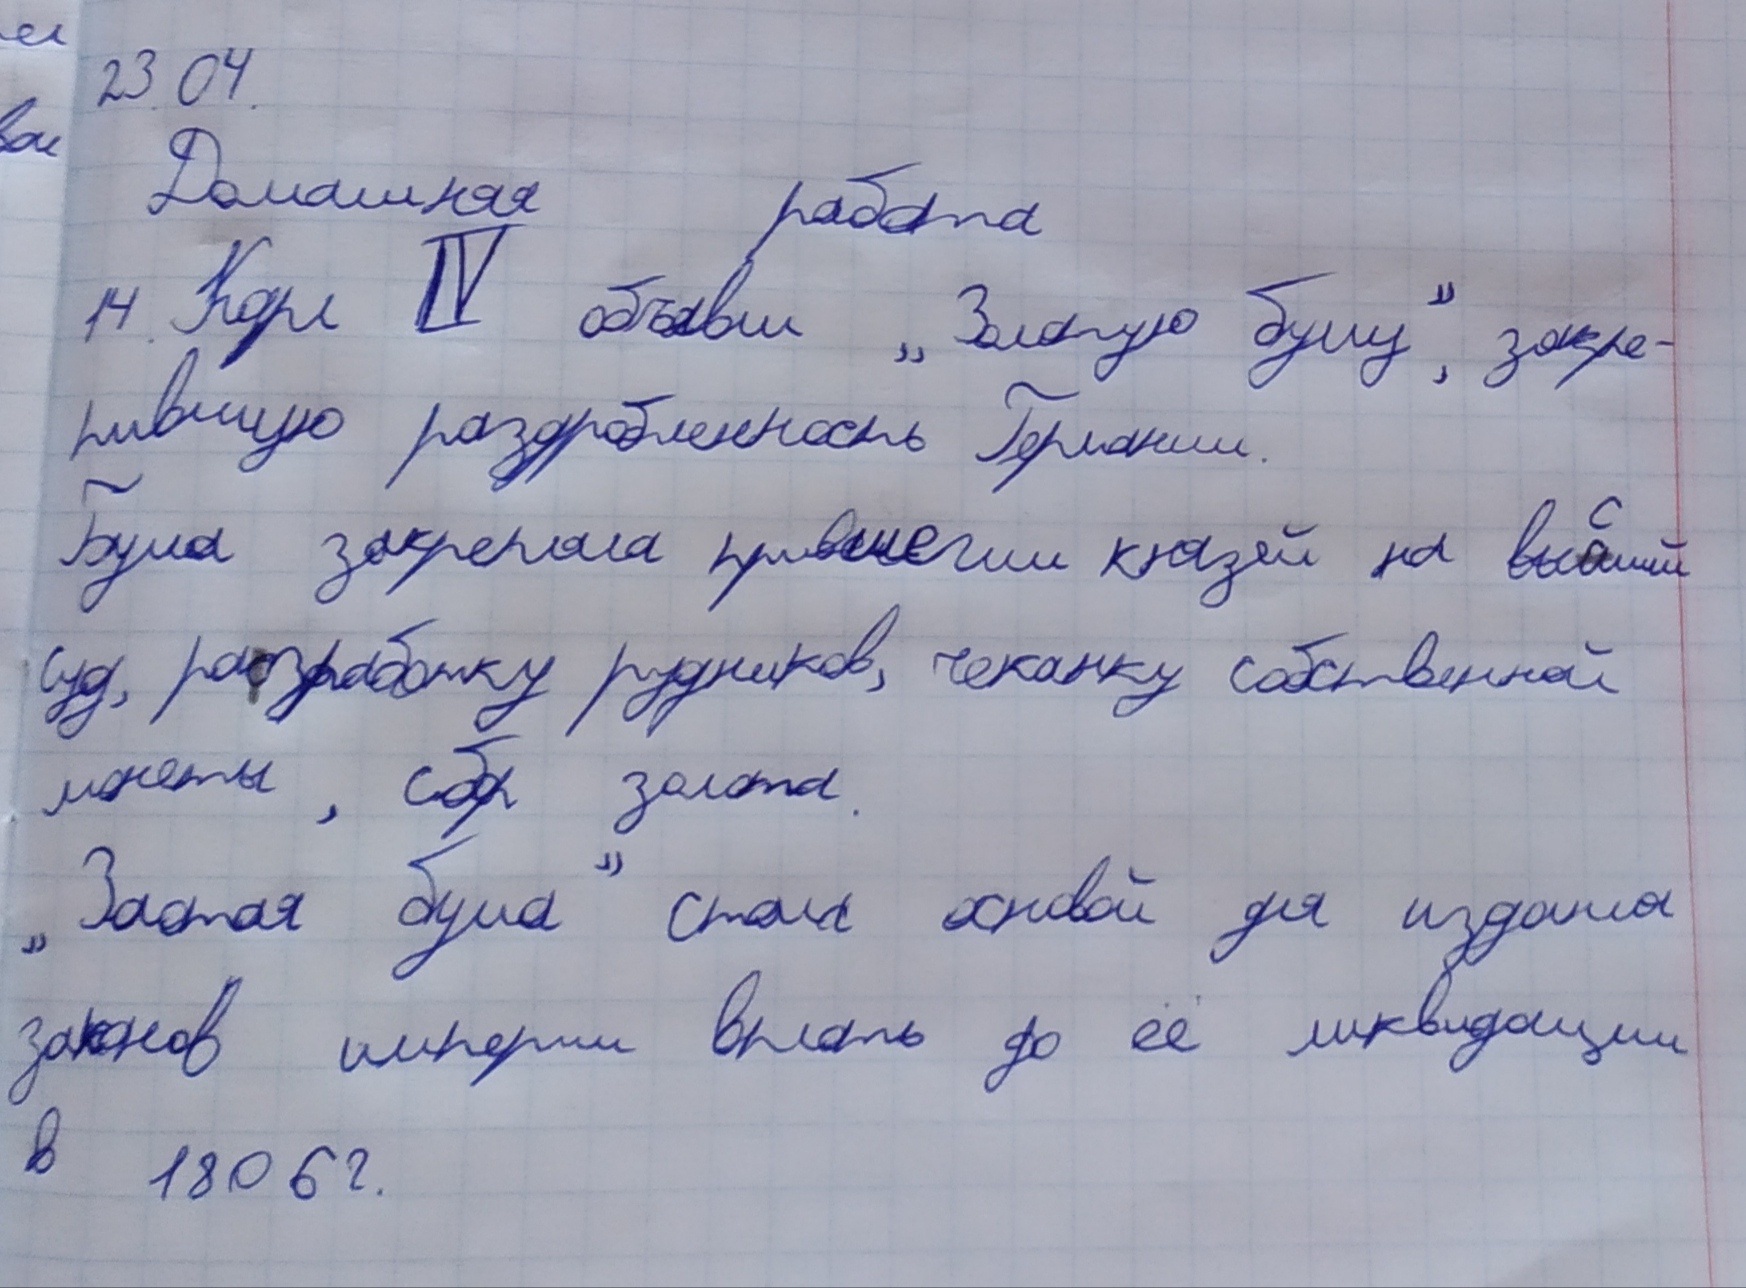 ел
вои
23.04.
Домашняя работа
14. Карл IV объявил „Золотую буллу”, закре-
пившую раздробленность Германии.
Булла закрепила привилегии князей на высший
суд, разработку рудников, чеканку собственной
монеты, сбор золота.
„Золотая булла” стала основой для издания
законов империи вплоть до её ликвидации
в 1806г.